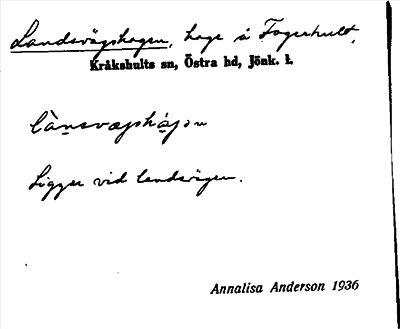 Landsvägshagen, hage å Fagerhult,
Kråkshults sn, Östra hd, Jönk. l.
Ligger vid landsvägen.
Annalisa Anderson 1936